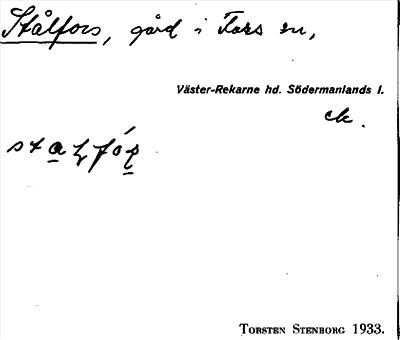 Stålfors, gård i Fors sn,
Väster-Rekarne hd. Södermanlands l.
ck.
TORSTEN STENBORG 1933.